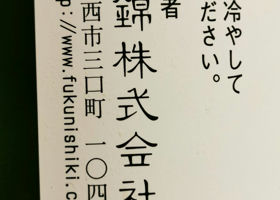 冷やして
ださい。
者
錦株式会社
西市三口町 一〇四
p://www.fukunishiki.c